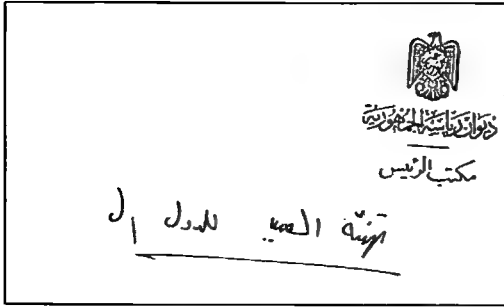 ديوان رئاسة الجمهورية
مكتب الرئيس
تهنئة العيد للدول ال